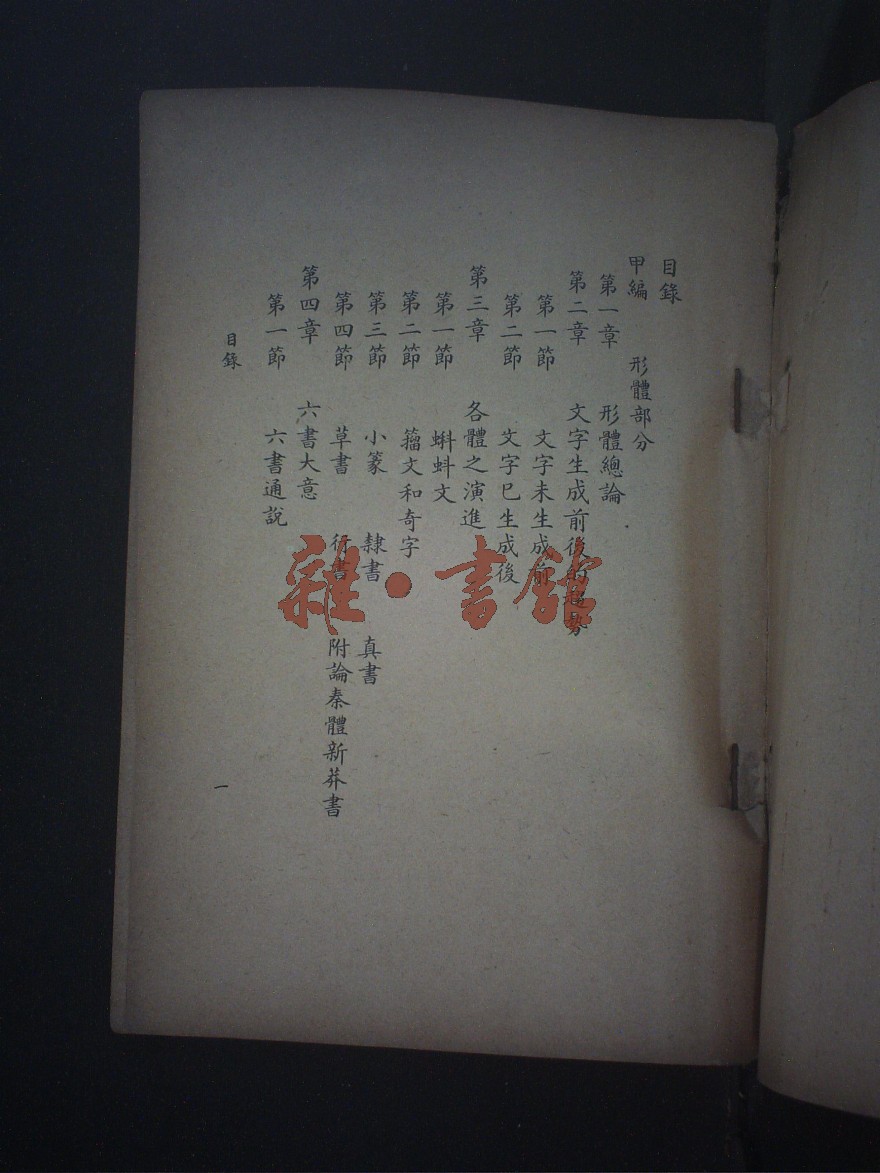 目錄
甲編　形體部分
第一章　形體總論
第二章　文字生成前後的趨勢
第一節　文字未生成前
第二節　文字已生成後
第三章　各體之演進
第一節　蝌蚪文
第二節　籀文和奇字
第三節　小篆　隸書　真書
第四節　草書　行書　附論秦體新莽書
第四章　六書大意
第一節　六書通說
目錄
一
雜·書館